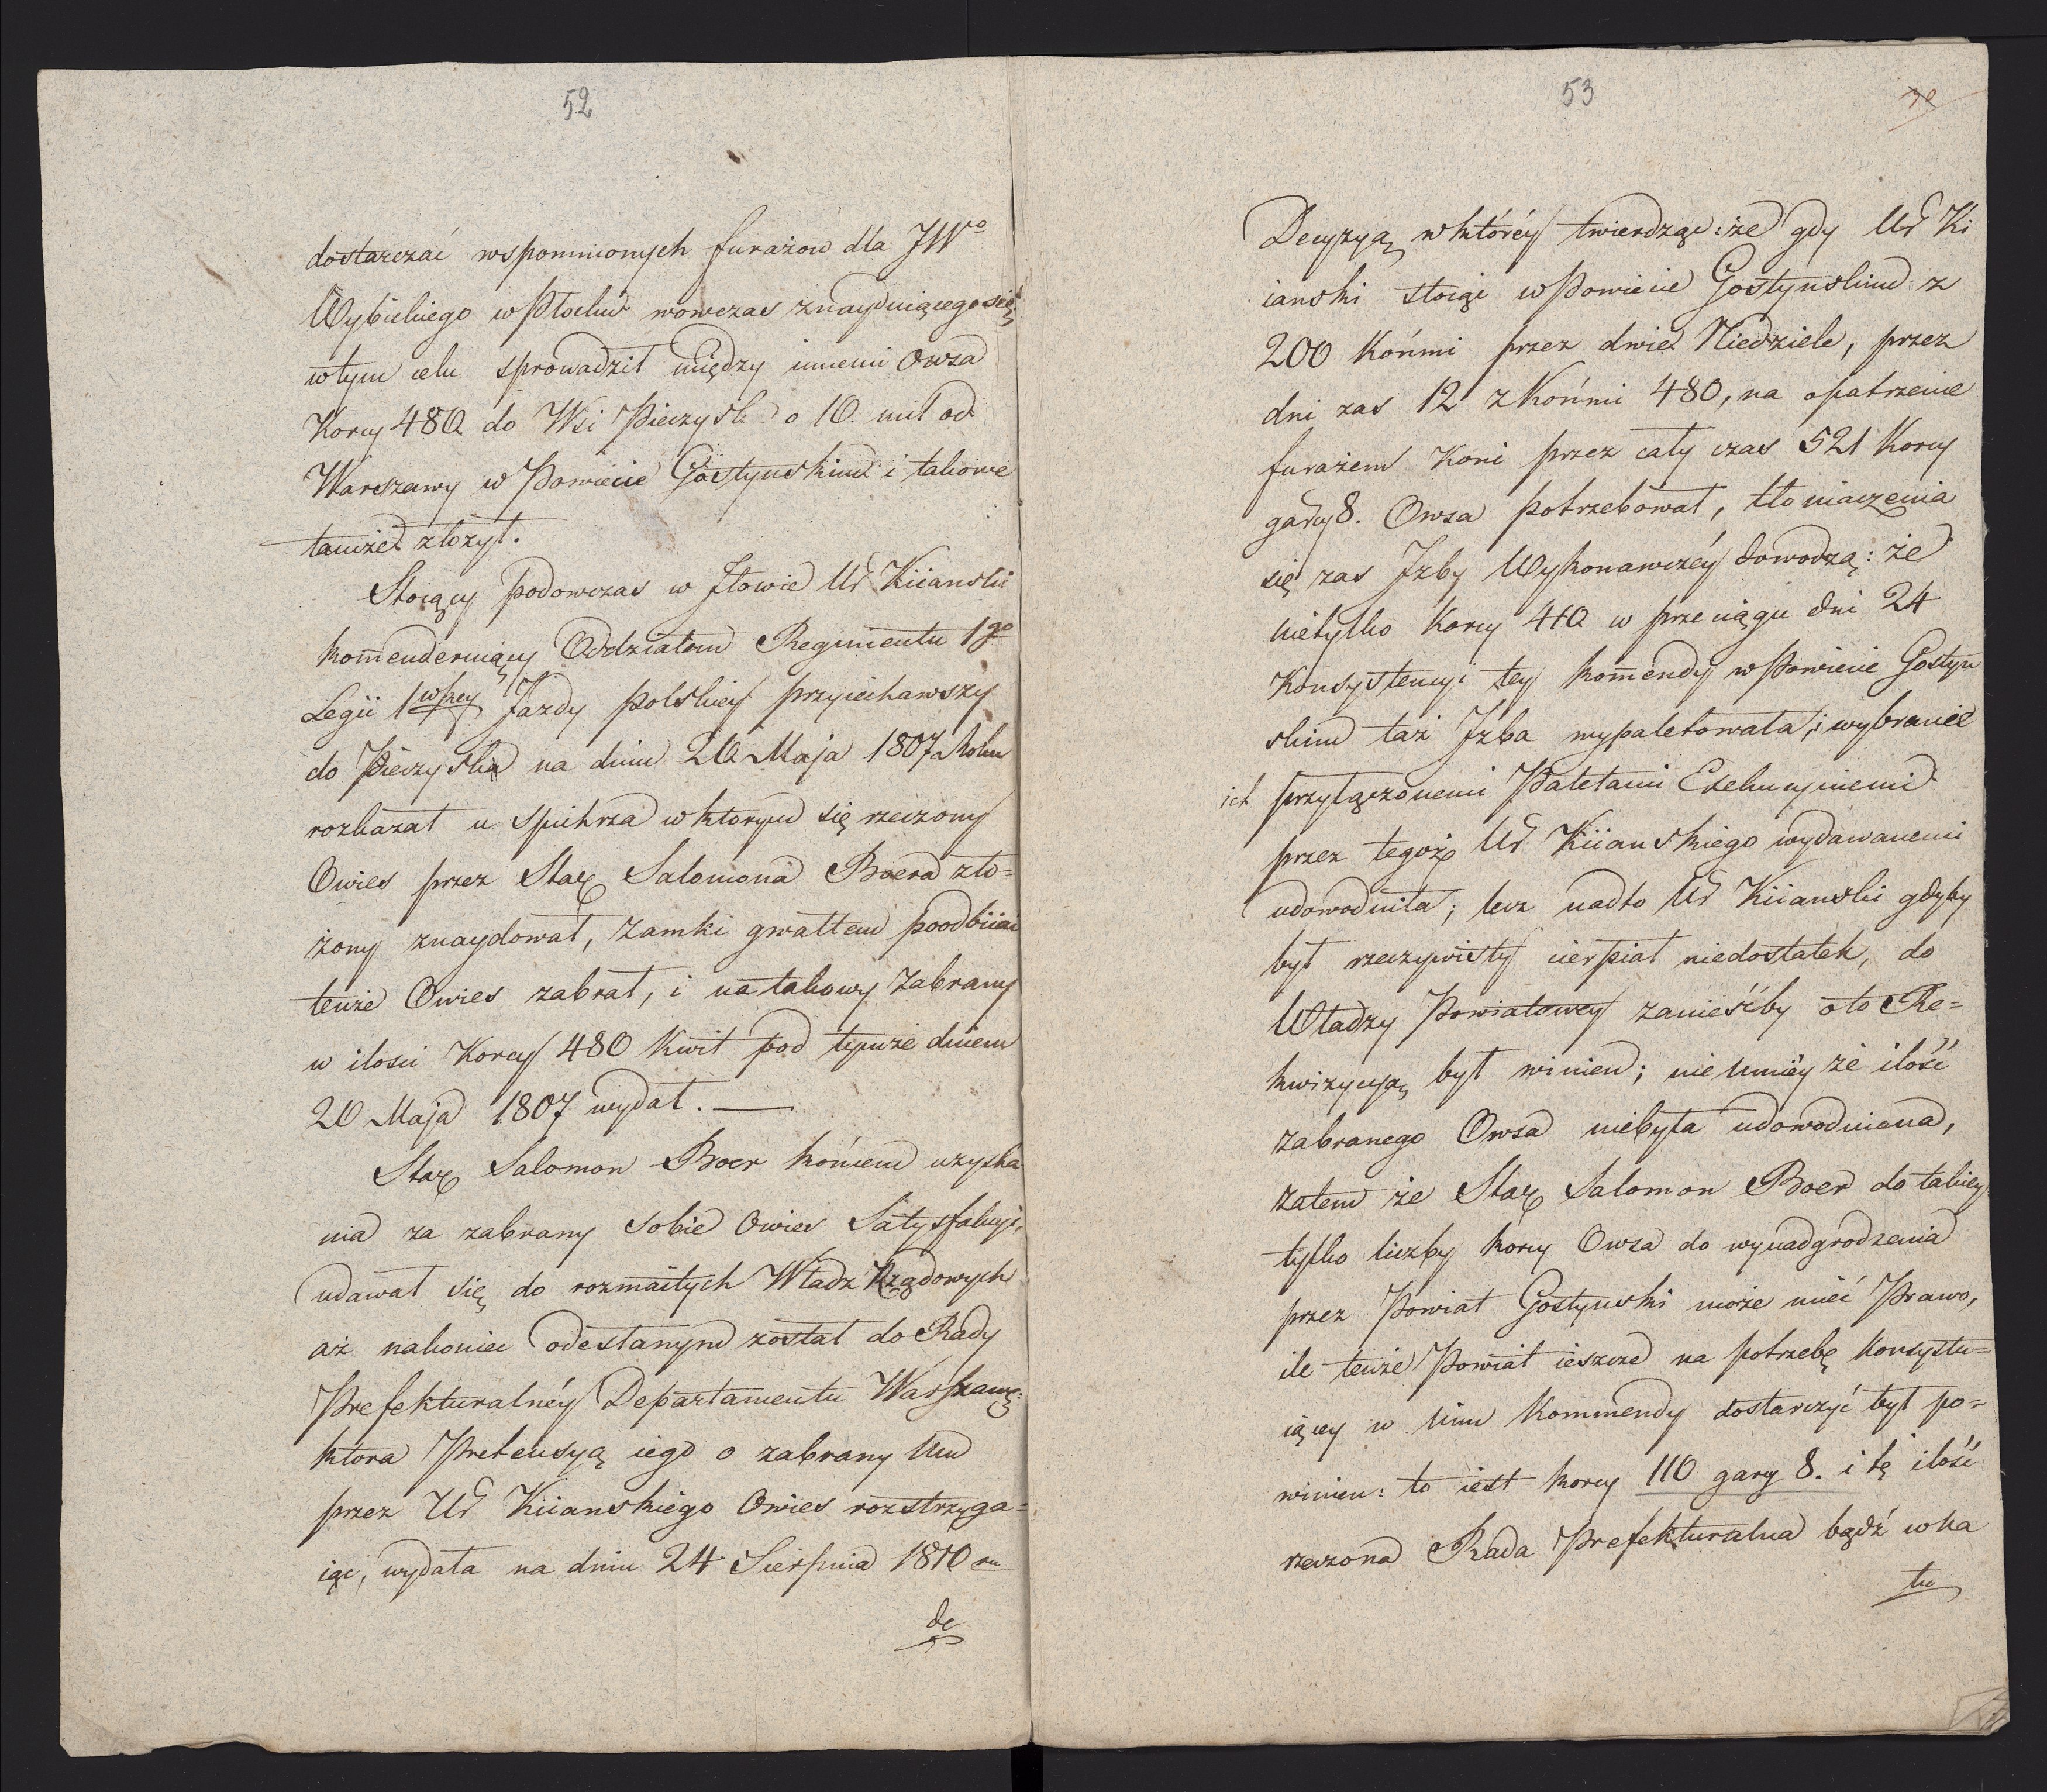 52
dostarczać wspomnionych furażow dla JWo
Wybickiego w Płocku wowczas znayduiącego się,
w tym celu sprowadził między innemi Owsa
Korcy 480. do Wsi Pieczysk o 10. mil od
Warszawy w Powiecie Gostynskim i takowe
tamże złożył.
Stoiący podowczas w Iłowie Ur Kiianski
kom̄enderuiący Oddziałem Regimentu 1go
Legii 1wszey Jazdy polskiey przyiechawszy
do Pieczyska na dniu 20 Maja 1807 Roku
rozkazał u spichrza w ktorym się rzeczony
Owies przez Star Salomona Boera zło=
żony znaydował, zamki gwałtem poodbiiac
tenże Owies zabrał, i na takowy zabrany
w ilosci Korcy 480 Kwit pod tymże dniem
20 Maja 1807 wydał. —
Star Salomon Boer końcem uzyska
nia za zabrany sobie owies Satysfakcyi,
udawał się do rozmaitych Władz Rządowych
aż nakoniec odesłanym został do Rady
Prefekturalnéy Departamentu Warszaws:
ktora Pretensyą iego o zabrany Mu
przez Ur Kiianskiego Owies rozstrzyga=
iąc, wydała na dniu 24 Sierpnia 1810 ru
de
53
Decyzyą, w któréy twierdząc: że gdy Ur Ki
ianski stoiąc w Powiecie Gostynskim z
200 Końmi przez dwie Niedziele, przez
dni zas 12 z Końmi 480, na opatrzenie
furażem Koni przez cały czas 521 Korcy
garcy 8. Owsa potrzebował, tłomaczenia
się zas Izby Wykonawczéy dowodzą: że
nietylko Korcy 410 w przeciągu dni 24
Konsystencyi tey kom̄endy w Powiecie Gostyn
skim taż Izba wypaletowała, i wybranie
ich przyłączonemi Paletami Exekucyinemi
przez tegoż Ur Kiianskiego wydawanemi
udowodniła; lecz nadto Ur Kiianski gdyby
był rzeczywisty cierpiał niedostatek, do
Władzy Powiatowey zanieśćby o to Re=
kwizycyą był winien; niemniéy że ilość
zabranego Owsa niebyła udowodniona,
zatem że Star Salomon Boer do takiey
tylko liczby korcy Owsa do wynadgrodzenia
przez Powiat Gostynski może mieć Prawo,
ile tenże Powiat ieszcze na potrzebę Konsystu=
iącey w nim Kommendy dostarczyć był po=
winien: to iest korcy 110 garcy 8. i tę ilość
rzeczona Rada Prefekturalna bądź w ka
tu